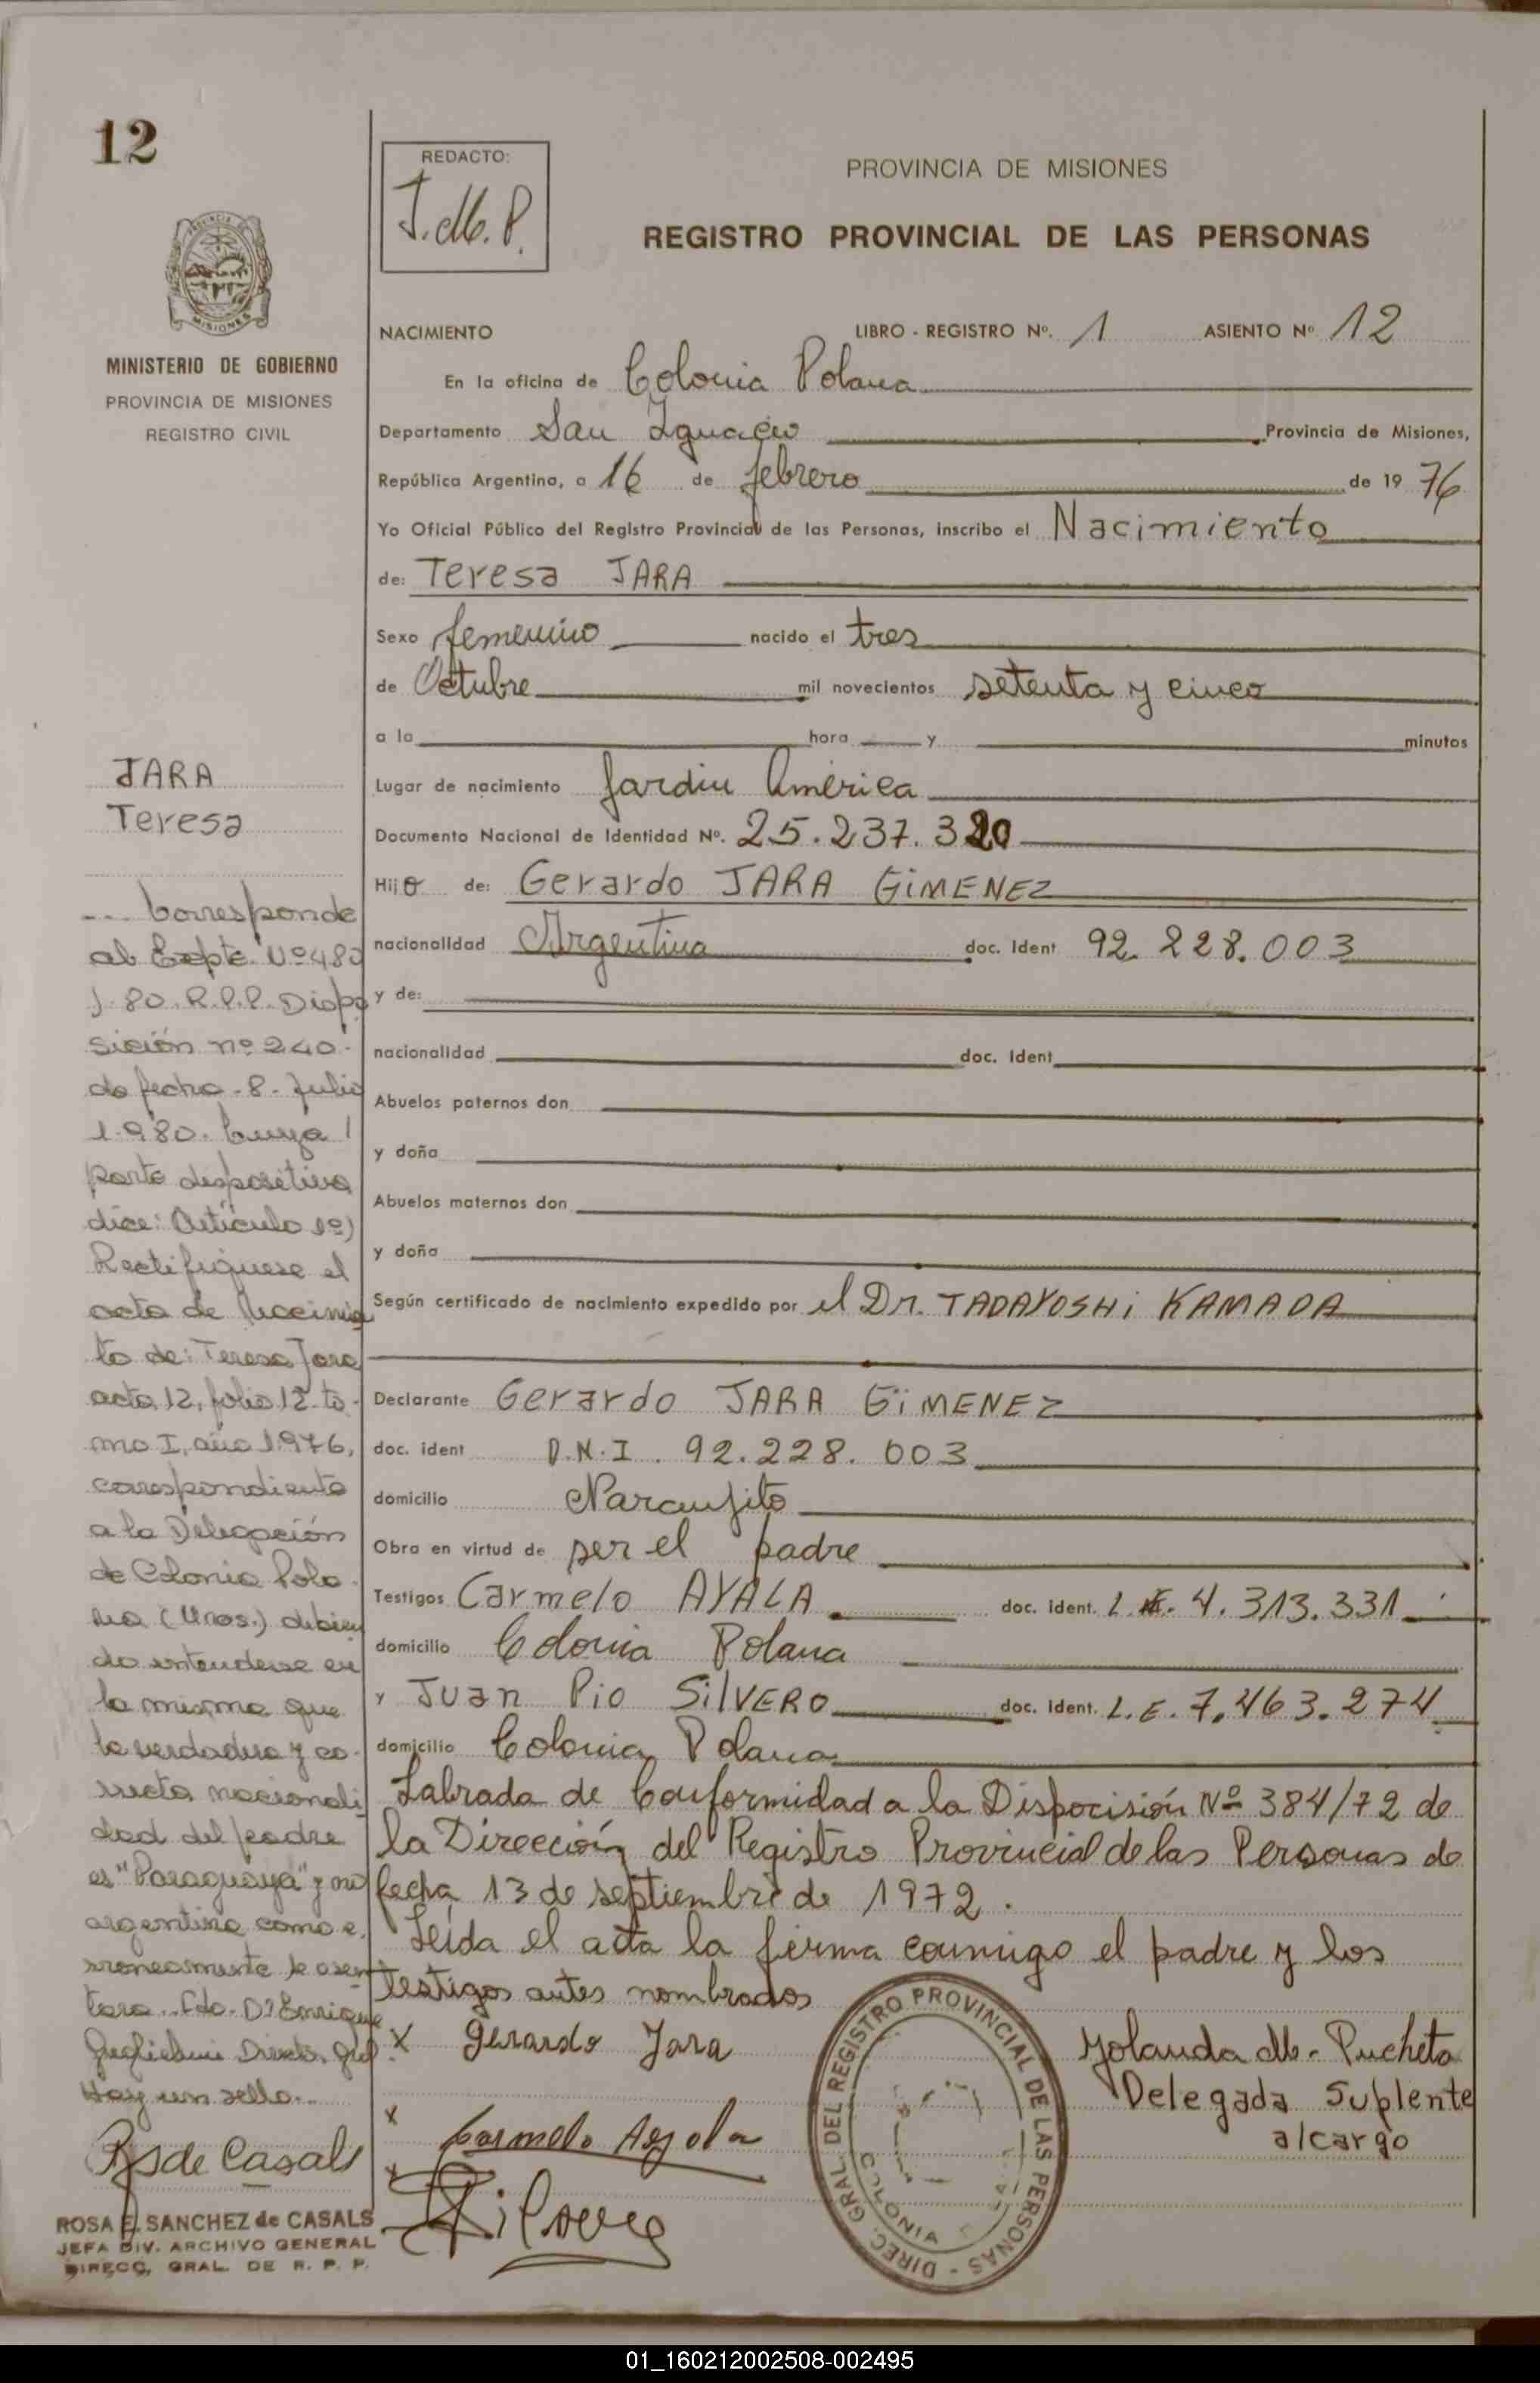 12
REDACTO:
PROVINCIA DE MISIONES
REGISTRO PROVINCIAL DE LAS PERSONAS
MISIONES
MINISTERIO DE GOBIERNO
PROVINCIA DE MISIONES
REGISTRO CIVIL
NACIMIENTO LIBRO - REGISTRO Nº. 1 ASIENTO Nº 12
En la oficina de Colonia Polana
Departamento San Ignacio Provincia de Misiones,
República Argentina, a 16 de febrero de 19 76
Yo Oficial Público del Registro Provincial de las Personas, inscribo el Nacimiento
de: Teresa JARA
Sexo femenino nacido el tres
de Octubre mil novecientos setenta y cinco
a la hora y minutos
Lugar de nacimiento Jardin América
Documento Nacional de Identidad Nº. 25.237.320
Hijo de: Gerardo JARA GiMENEZ
nacionalidad Argentina doc. Ident 92.228.003
y de:
nacionalidad doc. Ident
Abuelos paternos don
y doña
Abuelos maternos don
y doña
Según certificado de nacimiento expedido por el Dr. TADAYOSHi KAMADA
Declarante Gerardo JARA GiMENEZ
doc. ident D.N.I. 92.228.003
domicilio Naranjito
Obra en virtud de ser el padre
Testigos Carmelo AYALA doc. ident. L.E. 4.313.331
domicilio Colonia Polana
y Juan Pio SilVERO doc. Ident. L.E. 7.463.274
domicilio Colonia Polana
Labrada de Conformidad a la Dispocisión Nº 384/72 de
la Dirección del Registro Provincial de las Personas de
fecha 13 de septiembre de 1972.
Leída el acta la firma conmigo el padre y los
testigos antes nombrados
x Gerardo Jara
x Carmelo Ayala
x Silvero
Yolanda M. Pucheta
Delegada Suplente
a/cargo
DIREC. GRAL. DEL REGISTRO PROVINCIAL DE LAS PERSONAS -
COLONIA
JARA
Teresa
... Corresponde
al Expte. Nº 480
/ 80. R.P.P. Dispo
sición nº 240.
de fecha - 8 - Julio
1.980. Cuya /
parte dispositiva
dice: Artículo 1º)
Rectifíquese el
acta de Nacimie
to de: Teresa Jara
acta 12, folio 12 to-
mo I, año 1.976,
correspondiente
a la Delegación
de Colonia Pola-
na (Mnes.) debien
do entenderse en
la misma que
la verdadera y co-
rrecta nacionali
dad del padre
es "Paraguaya" y no
argentina como e.
rroneamente le asen
tara.. Fdo. Dº Enrique
Guglielmi Director Gral.
Hay un sello...
RSde Casals
ROSA E. SANCHEZ de CASALS
JEFA DIV. ARCHIVO GENERAL
DIRECC. GRAL. DE R. P. P.
01_160212002508-002495